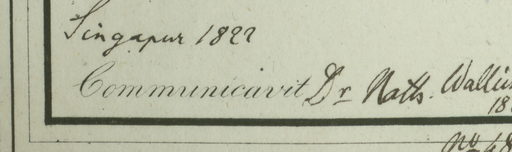 Singapur 1822
Communicavit Dr Nath. Wallich
18
No 48